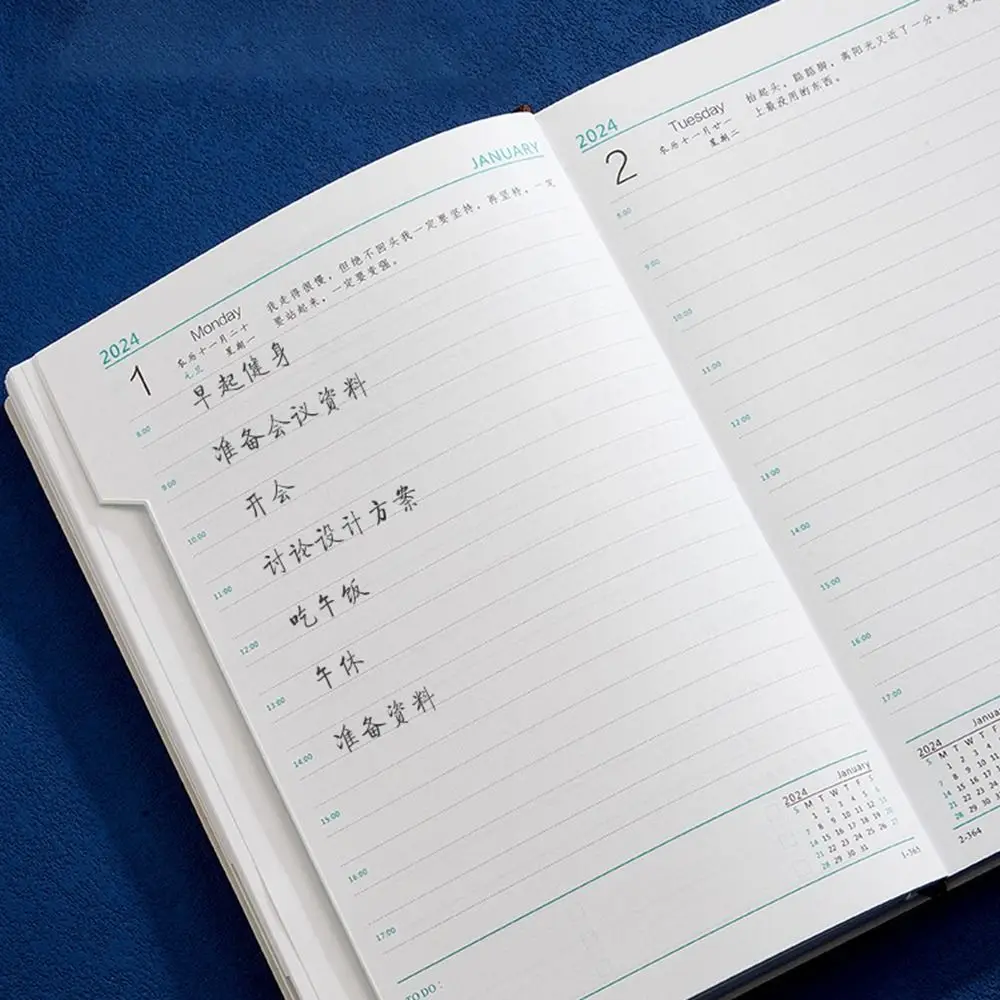 JANUARY
2024
1
Monday
农历十一月二十
元旦 星期一
我走得很慢，但绝不回头我一定要坚持，再坚持，一定
要站起来，一定要变强。
早起健身
8:00
准备会议资料
9:00
开会
10:00
讨论设计方案
11:00
吃午饭
12:00
午休
13:00
准备资料
14:00
15:00
16:00
17:00
TO DO：
2024 January
S M T W T F S
1 2 3 4 5 6
7 8 9 10 11 12 13
14 15 16 17 18 19 20
21 22 23 24 25 26 27
28 29 30 31
1-365
2024
2
Tuesday
农历十一月廿一
星期二
抬起头，踮踮脚，离阳光又近了一分。发愁是
上最没用的东西。
8:00
9:00
10:00
11:00
12:00
13:00
14:00
15:00
16:00
17:00
2024 Janua
S M T W T F
1 2 3 4 5
7 8 9 10 11
14 15 16 17 18
21 22 23 24 25
28 29 30 31
2-364